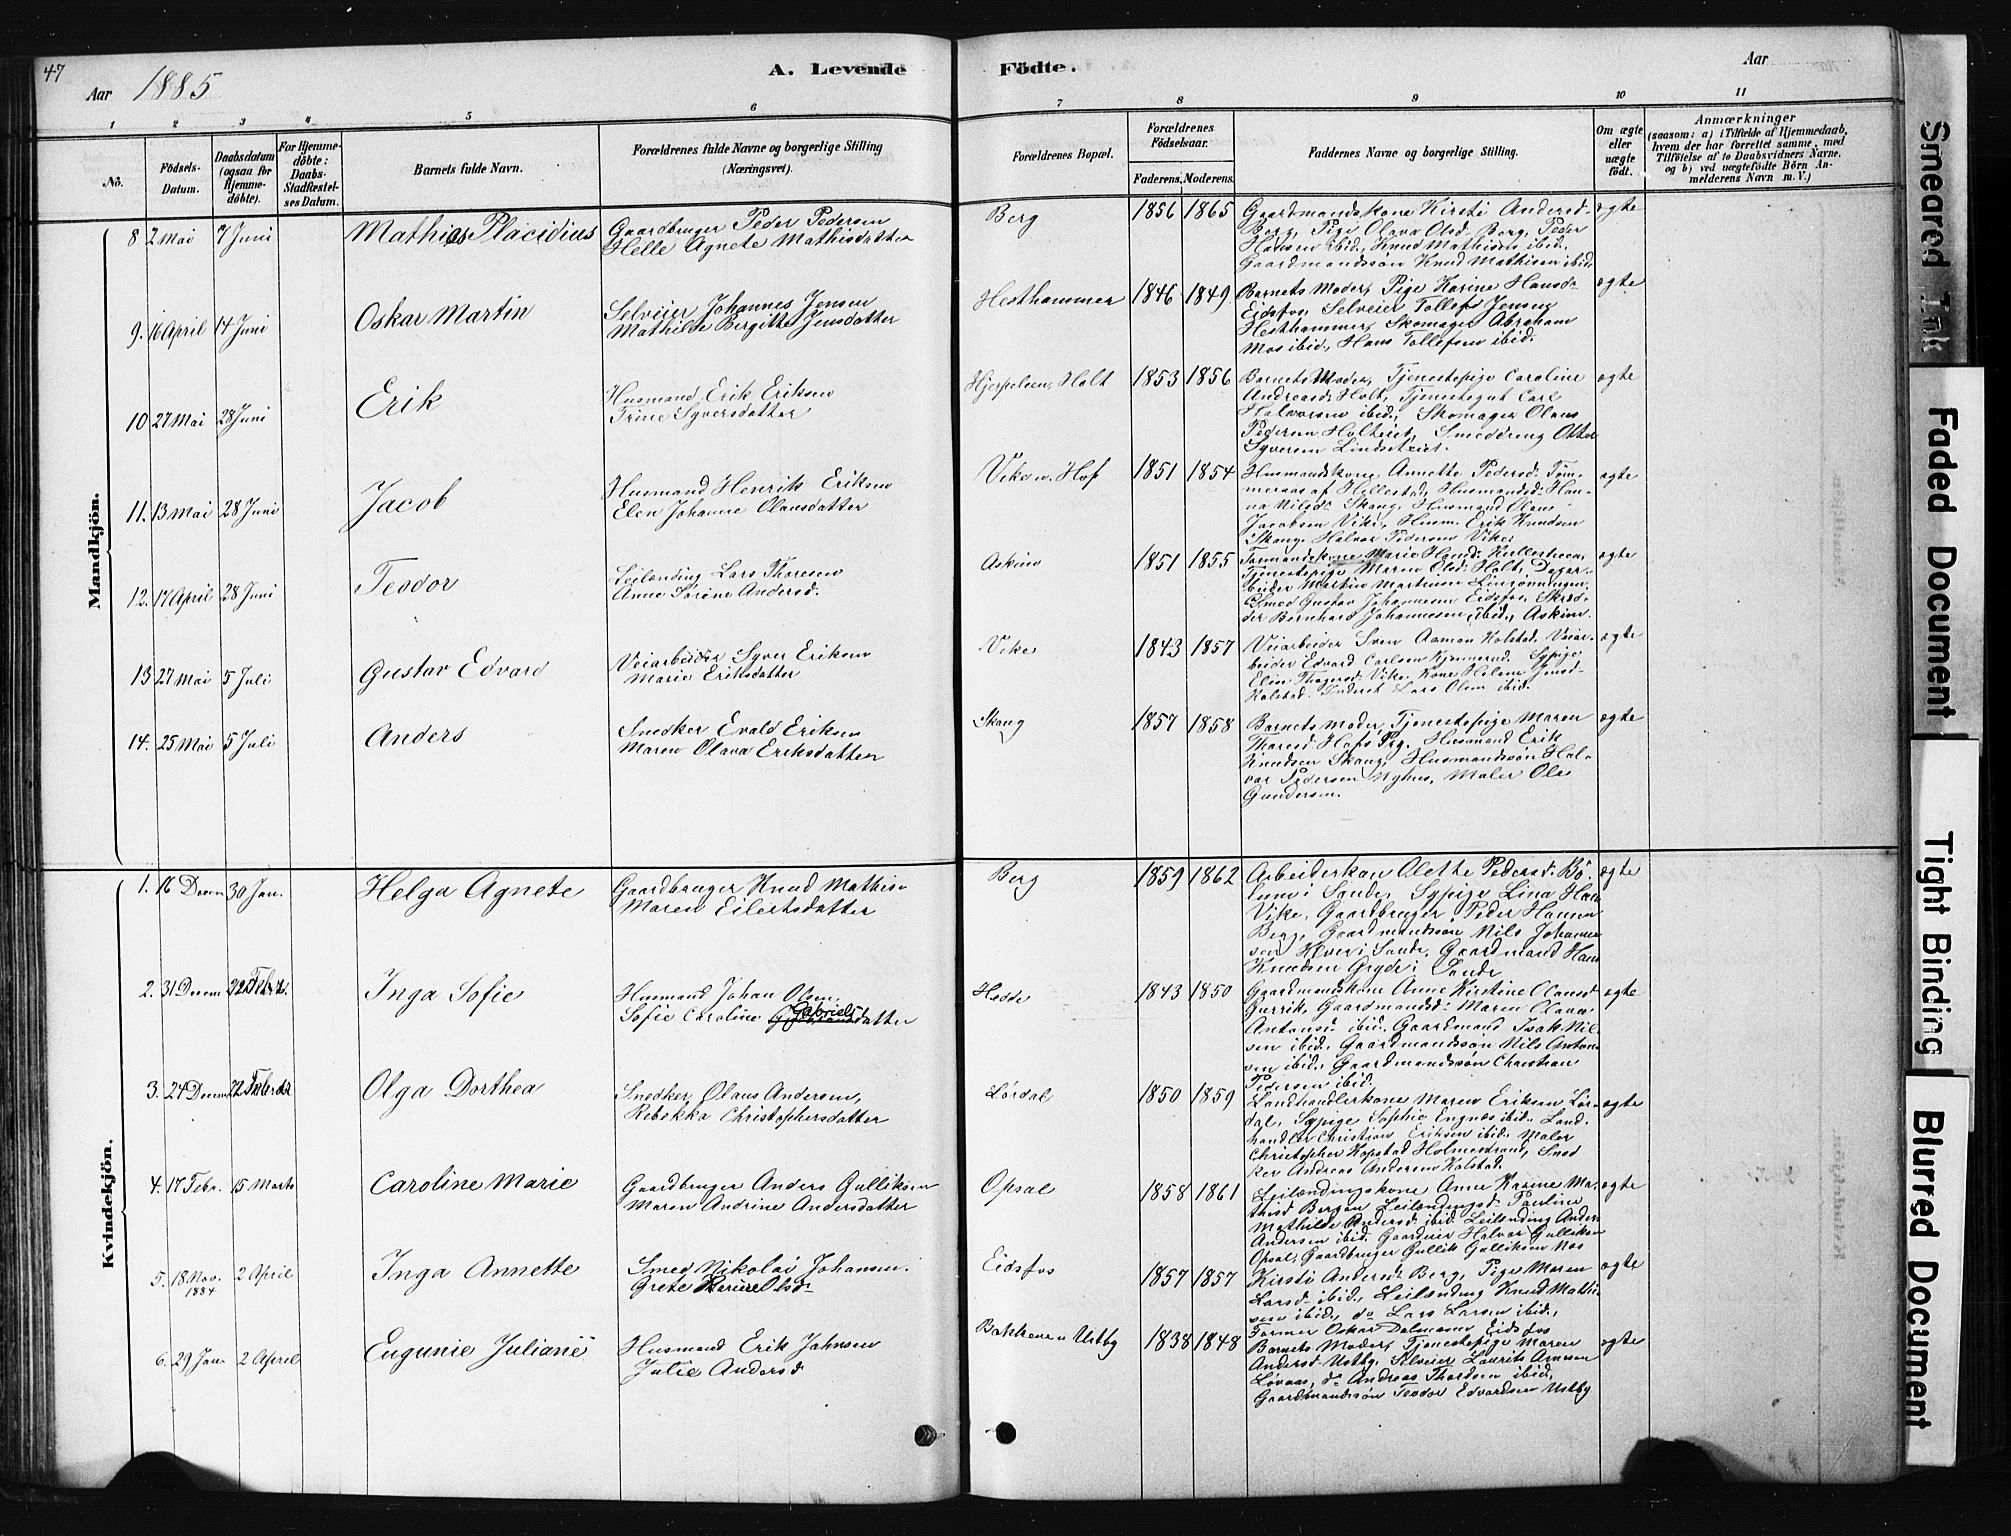 47
Aar 1885
A. Levende
Födte.
Aar
1 2 3 4 5 6 7 8 9 10 11
No.
Födsels-Datum.
Daabsdatum (ogsaa for Hjemme-döbte).
For Hjemme-döbte: Daabs-Stadfæstel-ses Datum.
Barnets fulde Navn.
Forældrenes fulde Navne og borgerlige Stilling
(Næringsvei).
Forældrenes Bopæl.
Forældrenes Födselsaar.
Faderens. Moderens.
Faddernes Navne og borgerlige Stilling.
Om ægte eller uægte födt.
Anmærkninger
(saasom: a) i Tilfælde af Hjemmedaab,
hvem der har forrettet samme, med
Tilföielse af to Daabsvidners Navne,
og b) ved uægtefödte Börn An-
melderens Navn m. V.)
Mandkjön.
8 2 Mai 7 Juni Mathias Placidius
Gaardbruger Peder Pedersen
Helle Agnete Mathisdatter
Berg 1856 1865
Gaardmandskone Kirsti Andersd-
Berg, Pige Olava Olsd- Berg, Peder
Hansen ibid, Knud Mathisen ibid,
Gaardmandssøn Knud Mathisen ibid
ægte
9. 16 April 14 Juni Oskar Martin
Selveier Johannes Jensen
Mathilde Birgitte Jensdatter
Hesthammer 1846 1849
Barnets Moder, Pige Karine Hansd-
Eidsfos, Selveier Tollef Jensen
Hesthammer, Skomager Abraham
Moe ibid, Hans Tollefsen ibid.
ægte
10 27 Mai 28 Juni Erik
Husmand Erik Eriksen
Trine Syversdatter
Hjerpelsen, Holt 1853 1856
Barnets Moder, Tjenestepige Caroline
Andreasd. Holt, Tjenestegut Carl
Halvorsen ibid, Skomager Olaus
Pedersen Holteiet, Smeddreng Otto
Syversen Lindseteiet.
ægte
11. 13 Mai 28 Juni Jacob
Husmand Henrik Eriksen
Elen Johanne Olausdatter
Viken, Hof 1851 1854
Husmandskone Annette Pedersd- Töm-
meraas af Hillestad, Husmandsd- Han-
na Nilsd- Skaug, Husmand Olaus
Jacobsen Vike, Husm. Erik Knudsen
Skaug, Halvor Pedersen Vike
ægte
12. 17 April 28 Juni Teodor
Leilænding Lars Thoresen
Anne Sörine Andersd.
Askim 1851 1855
Tjenestepige Maren Olsd. Holt, Dagar-
beider Martin Martinsen
Smed Gustav Johannesen Eidsfos, Skræd-
der Bernhard Johannesen, ibid, Askim.
ægte
13 27 Mai 5 Juli Gustav Edvard
Veiarbeider Syver Eriksen
Marie Eriksdatter
Vike 1843 1857
Veiarbeider Sven Aaman Kolstad. Veiar-
beider Edvard Carlsen Kjennerud. Sypige
Elise Thogersd- Vike, Kone Helene Jensd-
Kolstad. Inderst Lars Olsen ibid.
ægte
14. 25 Mai 5 Juli Anders
Snedker Evald Eriksen
Maren Olava Eriksdatter
Skaug 1857 1858
Barnets Moder, Tjenestepige Maren
Thoresd- Hofs Prg. Husmand Erik
Knudsen Skaug, Husmandssøn Hal-
vor Pedersen Nyhus, Maler Ole
Gundersen.
ægte
Kvindekjön.
1. 16 Decem 30 Jan. Helga Agnete
Gaardbruger Knud Mathis-
Maren Eilertsdatter
Berg 1859 1862
Arbeiderkon Olette Pedersd. Bö-
lum i Sande, Sypige Lina Hans
Vike, Gaardbruger Peder Hansen
Berg, Gaardmandssøn Nils Johannes
sen Hver i Sande, Gaardmand Hans
Knudsen Gryde i Sande
ægte
2. 31 Decem 22 Febr. Inga Sofie
Husmand Johan Olsen.
Sofie Caroline Gabrielsdatter
Hodde 1843 1850
Gaardmandskone Anne Kirstine Olausd-
Gurrik, Gaardmandsd- Maren Olava
Antonsd- ibid, Gaardmand Isak Nil-
sen ibid, Gaardmandssøn Nils Anton-
sen ibid, Gaardmandssøn Christian
Pedersen ibid
ægte
3. 24 Decem 22 Februar Olga Dorthea
Snedker Olaus Andersen,
Rebekka Christophersdatter
Lørdal 1850 1859
Landhandlerkone Maren Eriksen Lör-
dal, Sypige Sophie Engnæs ibid, Land-
handler Christian Eriksen ibid. Maler
Christopher Kopstad Holmestrand, Sned
ker Andreas Andersen Kolstad.
ægte
4. 17 Febr. 15 Marts Caroline Marie
Gaardbruger Anders Gulliksen
Maren Andrine Andersdatter
Opsal 1858 1861
Leilændingskone Anne Karine Ma-
thisd Bergan, Leilændingsd- Pauline
Mathilde Andersd- ibid, Leilænding Anders
Andersen ibid. Gaardeier Halvor Gulliksen
Opsal, Gaardbruger Gullik Gulliksen Nos
ægte
5. 18 Nov. 1884 2 April Inga Annette
Smed Nikolai Johansen.
Grete Karine Olsd-
Eidsfos 1857 1857
Kirsti Andersd- Berg, Pige Maren
Larsd- ibid, Leilænding Knud Mathi-
sen ibid, do Lars Larsen ibid,
Former Oskar Dalmann Eidsfos
ægte
6. 29 Jan 2 April Eugunie Juliane
Husmand Erik Johnsen
Julie Andersd
Bakkenen Ustby 1838 1848
Barnets Moder, Tjenestepige Maren
Andersd- Ustby, Selveier Laurits Arnesen
Løvaas, do Andreas Thordsen ibid,
Gaardmandssøn Teodor Edvardsen Ustby
ægte
Smeared Ink
Faded Document
Tight Binding
Blurred Document